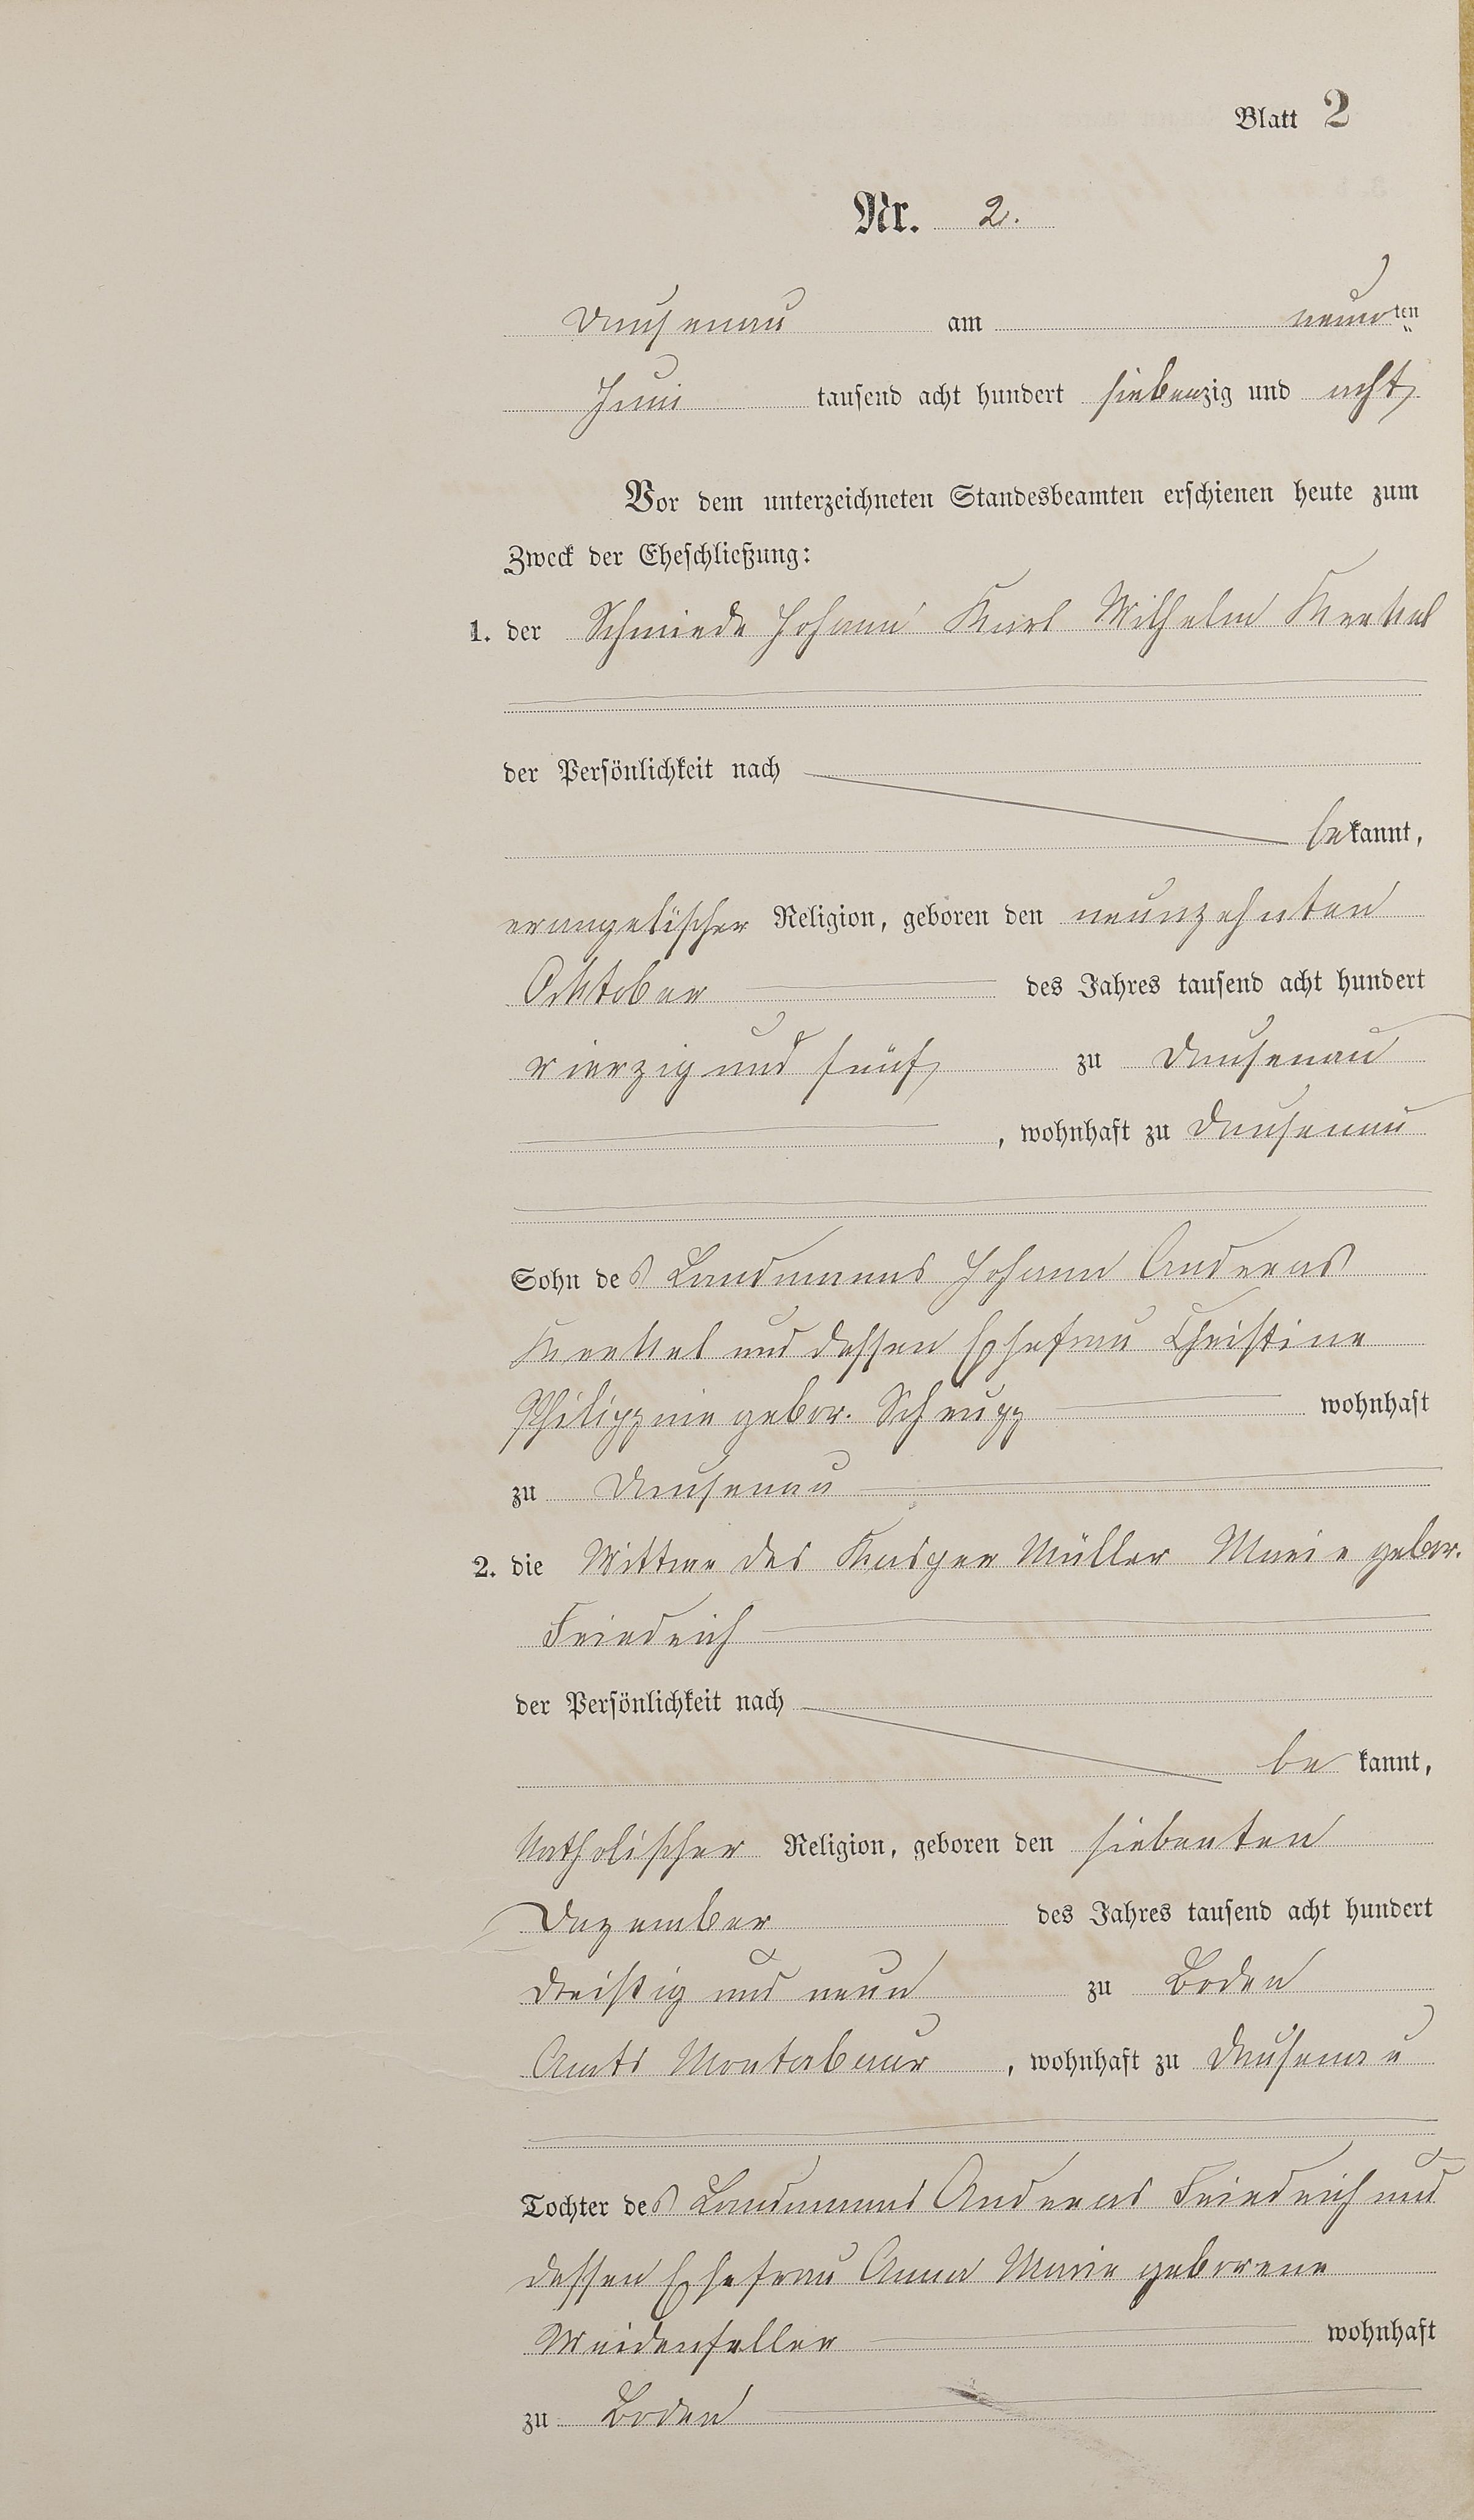 Blatt 2
Nr. 2.
Dausenau am neunten
Juni tausend acht hundert siebenzig und acht
Vor dem unterzeichneten Standesbeamten erschienen heute zum
Zweck der Eheschließung:
1. der Schmiede Johann Karl Wilhelm
der Persönlichkeit nach
bekannt,
evangelischer Religion, geboren den neunzehnten
Oktober des Jahres tausend acht hundert
vierzig und fünf zu Dausenau
, wohnhaft zu Dausenau
Sohn des Landmanns Johann Andreas
und dessen Ehefrau Christine
Philippine gebor. wohnhaft
zu Dausenau
2. die Wittwe des Kasper Müller Marie gebor.
Friedrich
der Persönlichkeit nach
be kannt,
katholischer Religion, geboren den siebenten
Dezember des Jahres tausend acht hundert
dreißig und neun zu Boden
Amts Montabaur , wohnhaft zu Dausenau
Tochter des Landmanns Andreas Friedrich und
dessen Ehefrau Anna Marie geborene
Weidenfeller wohnhaft
zu Boden